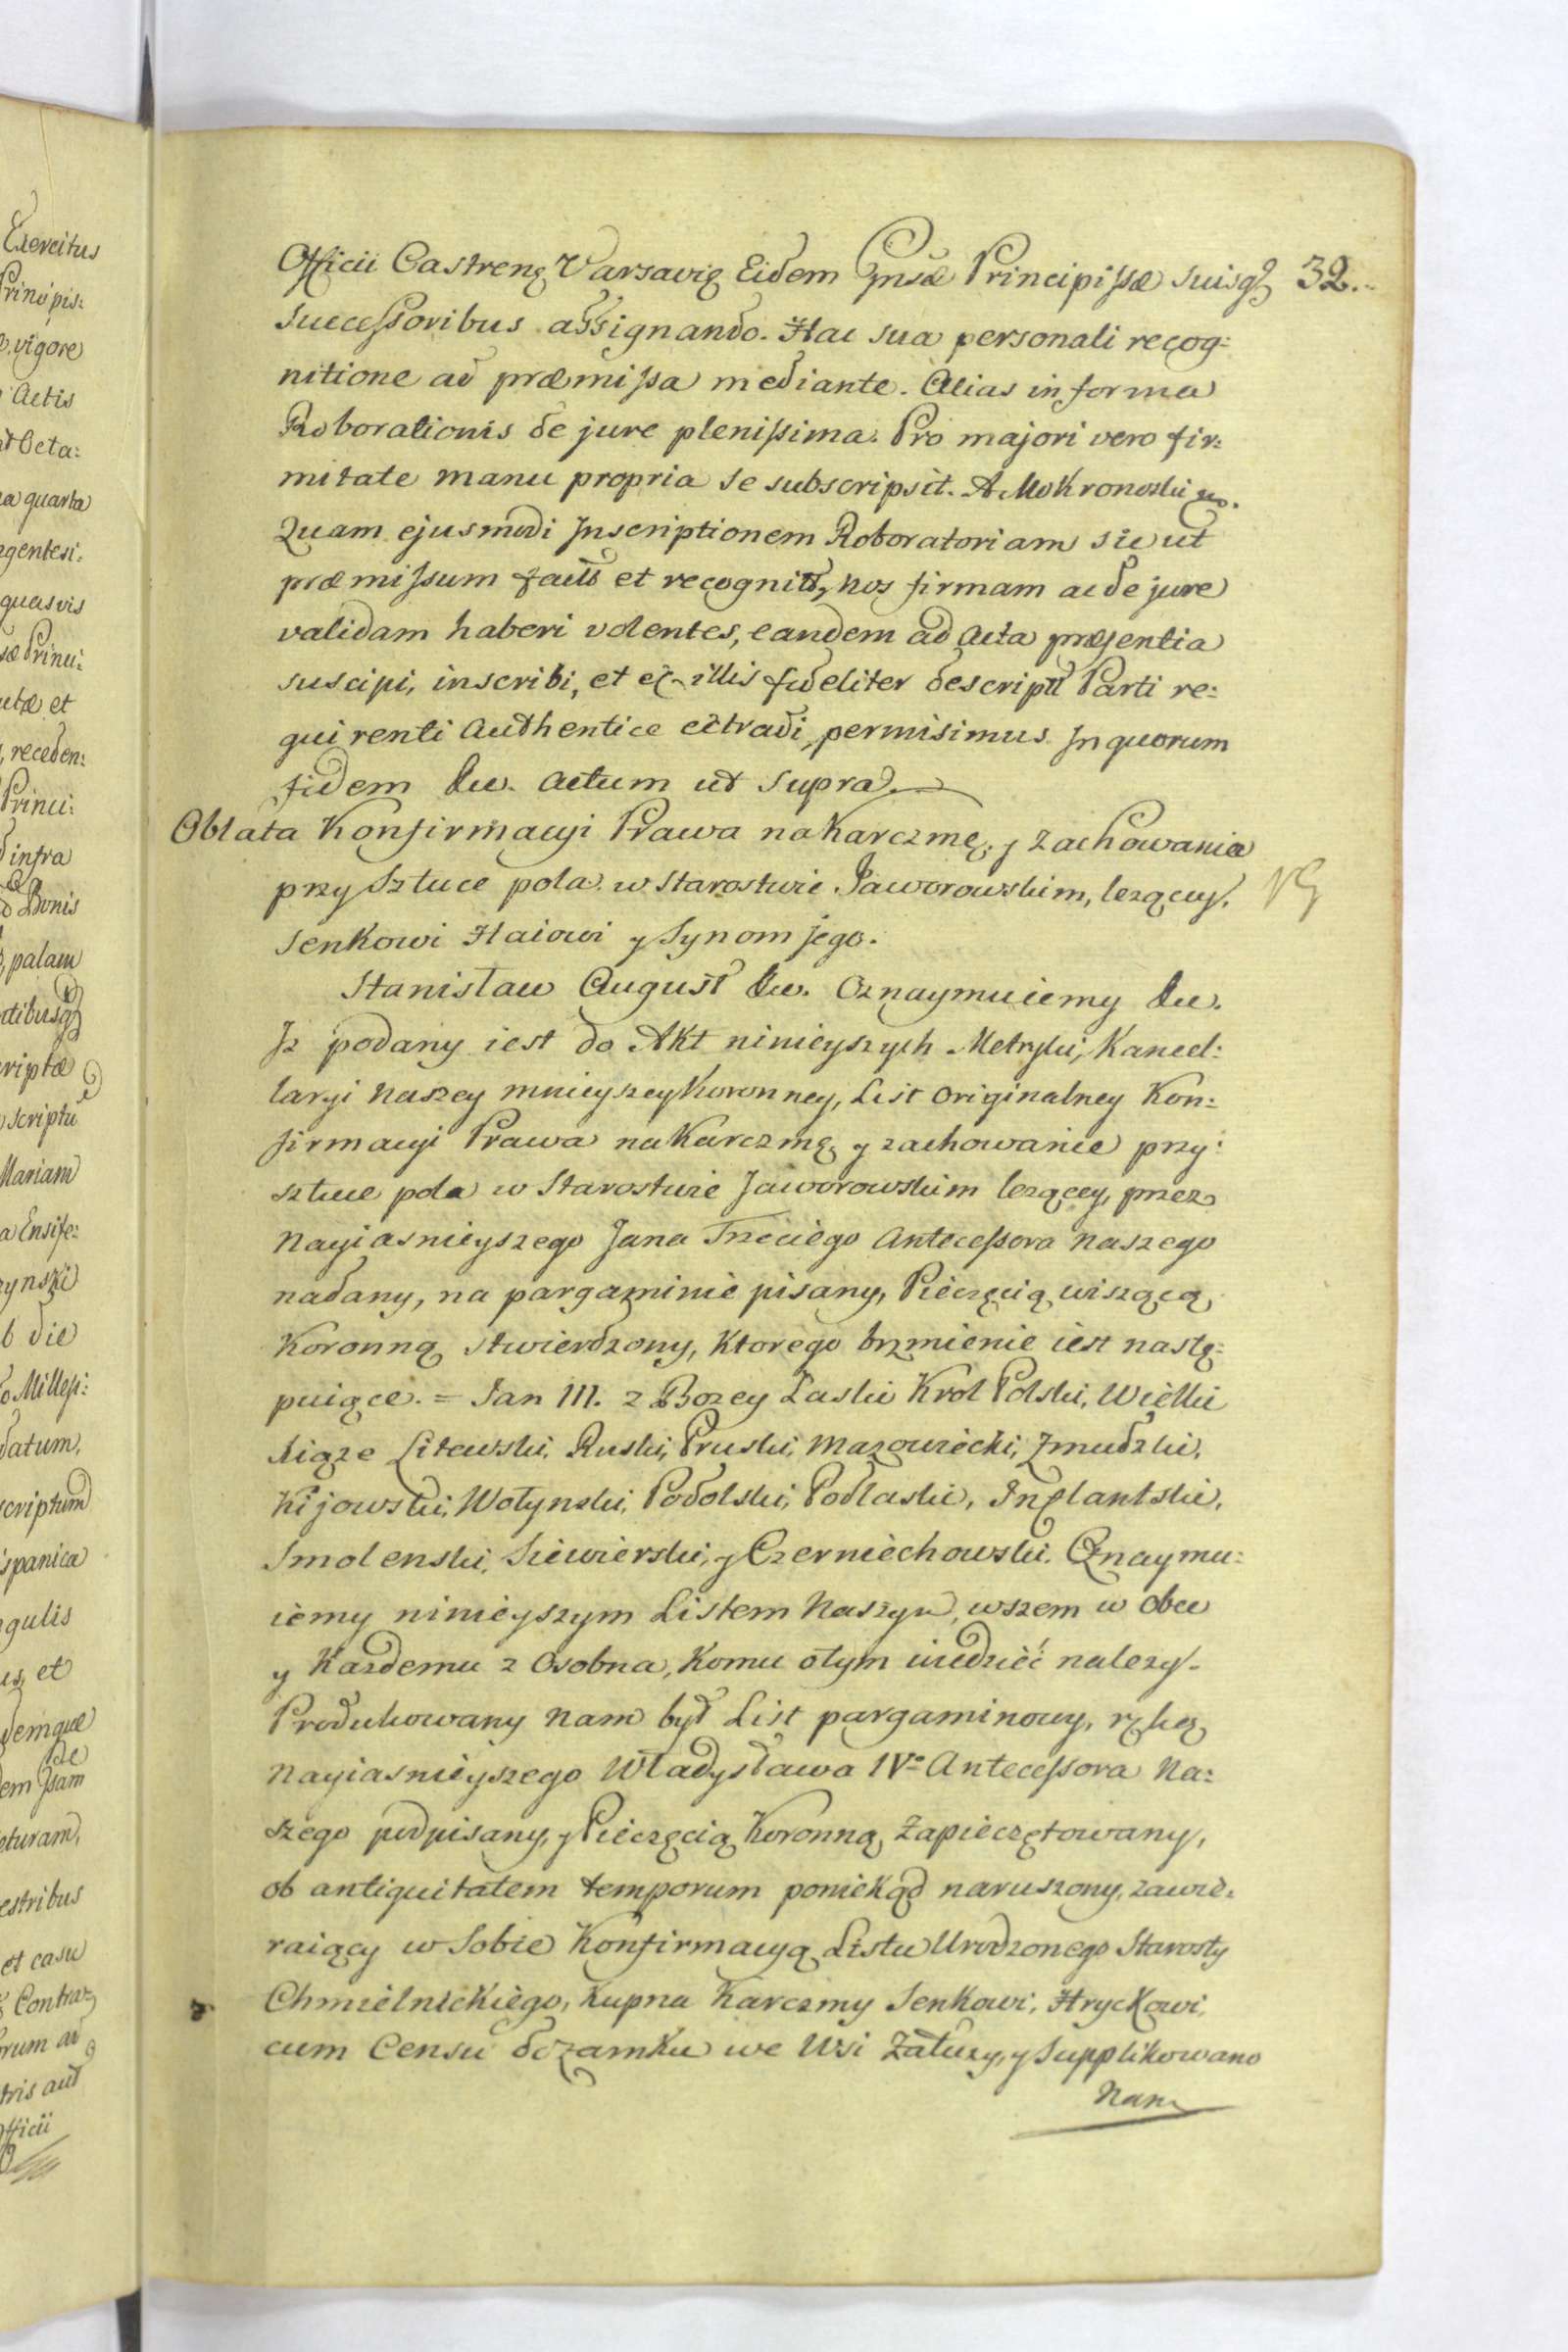 Exercitus
Princpis:
vigore
Actis
quarta
quasvis
Princi:
et
receden:
Princi:
infra
Bonis
palam
scriptu
Mariam
Ensife:
die
Millesi:
datum,
scriptum
ispanica
gulis
et
demque
Ipsam
et casu
Contra
aut
fficii
32.
Officii Castrenę Varsavię Eidem Gnsæ Principissæ suisqȝ
Successoribus assignando. Hac sua personali recog:
nitione ad præmissa mediante. Alias in forma
Roborationis de jure plenissima. Pro majori vero fir:
mitate manu propria se subscripsit. A Mokronoski mp.
Quam ejusmodi Inscriptionem Roboratoriam sicut
præmissum factã et recognitã, nos firmam ac de jure
validam haberi volentes, eandem ad Acta præsentia
suscipi, inscribi, et ex illis fideliter descriptã Parti re:
quirenti Authentice extradi, permisimus. In quorum
fidem &c. Actum ut Supra.
Oblata Konfirmacyi Prawa na Karczmę, y zachowania
przy Sztuce pola w Starostwie Jaworowskim, leżącey,
Senkowi Haiowi y Synom jego.
Stanisław August &c. Oznaymuiemy &c.
Iż podany iest do Akt ninieyszych Metryki, Kancel:
laryi Naszey mnieyszey Koronney, List Originalney Kon:
firmacyi Prawa na Karczmę y zachowanie przy
sztuce pola w Starostwie Jaworowskim leżącey, przez
Nayiasnieyszego Jana Trzeciego Antecessora Naszego
nadany, na pargaminie pisany, Pieczęcią wiszącą
Koronną stwierdzony, Ktorego brzmienie iest nastę:
puiące. = Jan III. z Bozey Łaski Krol Polski, Wielki
Xiąże Litewski, Ruski, Pruski, Mazowiecki, Zmudzki,
Kijowski, Wołynski, Podolski, Podlaski, Inflantski,
Smolenski, Siewierski, y Czerniechowski. Oznaymu:
iemy ninieyszym Listem Naszym, wszem w obec
y Kazdemu z Osobna, Komu o tym wiedzieć nalezy.
Produkowany Nam był List pargaminowy, ręką
Nayiasnieyszego Władysława IVo Antecessora Na:
szego podpisany, y Pieczęcią Koronną Zapieczętowany,
ob antiquitatem temporum poniekąd naruszony, zawie:
raiący w Sobie Konfirmacyą Listu Urodzonego Starosty
Chmielnickiego, Kupna Karczmy Senkowi, Hryckowi,
cum Censu do zamku we Wsi Załuzy, y Supplikowano
Nam